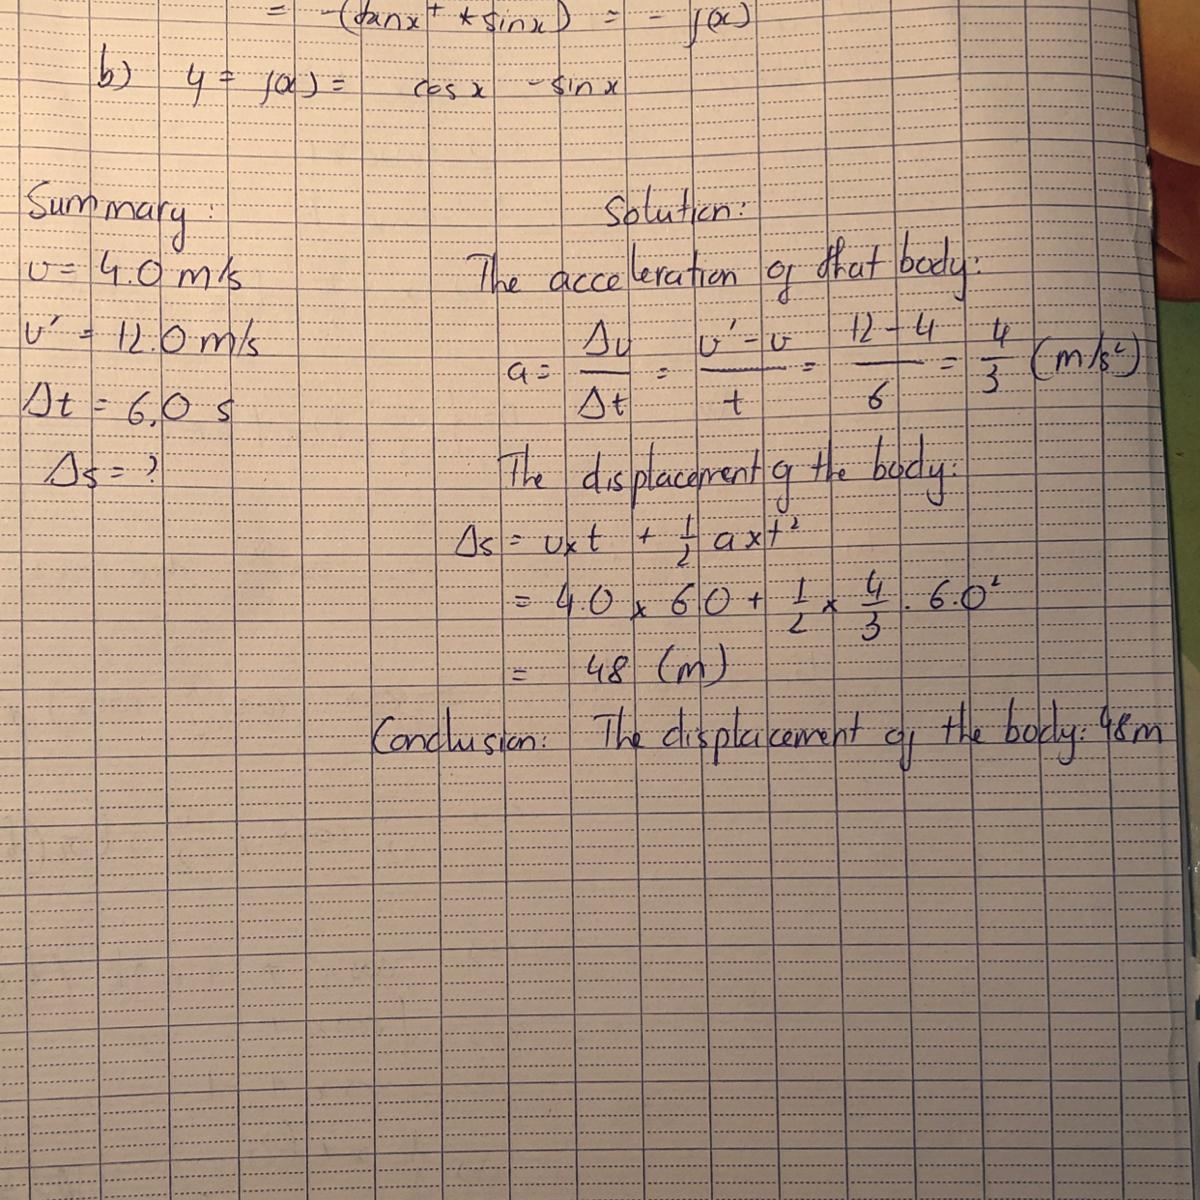 = -(tanx + *sinx) = - f(x)
b) y = f(x) = cosx - sinx
Summary:
v = 4.0 m/s
v' = 12.0 m/s
Δt = 6,0 s
Δs = ?
Solution:
The acceleration of that body:
a = Δv/Δt = (v' - v)/t = (12 - 4)/6 = 4/3 (m/s²)
The displacement of the body:
Δs = v×t + 1/2 a×t²
= 4.0 × 6.0 + 1/2 × 4/3 . 6.0²
= 48 (m)
Conclusion: The displacement of the body: 48m